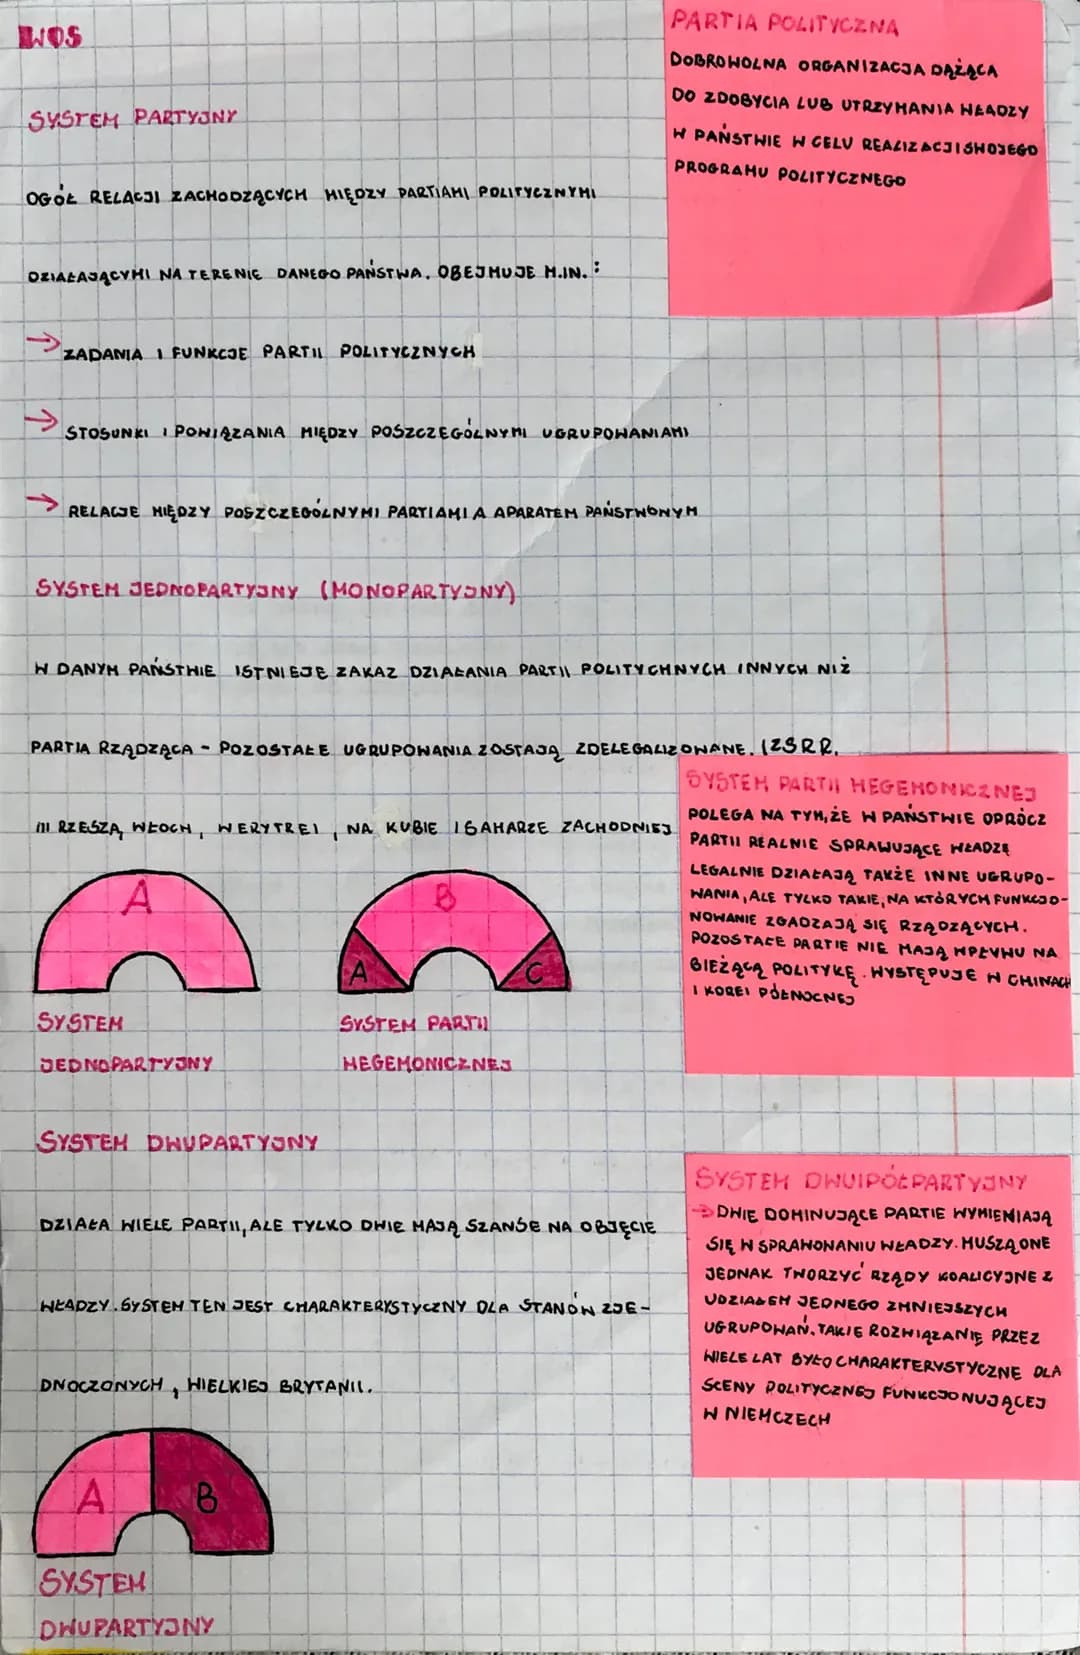 WOS
PARTIA POLITYCZNA
DOBROWOLNA ORGANIZACJA DĄŻĄCA
DO ZDOBYCIA LUB UTRZYMANIA WŁADZY
W PAŃSTWIE W CELU REALIZACJI SWOJEGO
PROGRAMU POLITYCZNEGO
SYSTEM PARTYJNY
OGÓŁ RELACJI ZACHODZĄCYCH MIĘDZY PARTIAMI POLITYCZNYMI
DZIAŁAJĄCYMI NA TERENIE DANEGO PAŃSTWA. OBEJMUJE M.IN. :
→ ZADANIA I FUNKCJE PARTII POLITYCZNYCH
→ STOSUNKI I POWIĄZANIA MIĘDZY POSZCZEGÓLNYMI UGRUPOWANIAMI
→ RELACJE MIĘDZY POSZCZEGÓLNYMI PARTIAMI A APARATEM PAŃSTWOWYM
SYSTEM JEDNOPARTYJNY (MONOPARTYJNY)
W DANYM PAŃSTWIE ISTNIEJE ZAKAZ DZIAŁANIA PARTII POLITYCHNYCH INNYCH NIŻ
PARTIA RZĄDZĄCA - POZOSTAŁE UGRUPOWANIA ZOSTAJĄ ZDELEGALIZOWANE. (ZSRR,
III RZESZA, WŁOCH, W ERYTREI, NA KUBIE I SAHARZE ZACHODNIEJ
A
SYSTEM
JEDNOPARTYJNY
B
A
C
SYSTEM PARTII
HEGEMONICZNEJ
SYSTEM PARTII HEGEMONICZNEJ
POLEGA NA TYM, ŻE W PAŃSTWIE OPRÓCZ
PARTII REALNIE SPRAWUJĄCE WŁADZĘ
LEGALNIE DZIAŁAJĄ TAKŻE INNE UGRUPO-
WANIA, ALE TYLKO TAKIE, NA KTÓRYCH FUNKCJO-
NOWANIE ZGADZAJĄ SIĘ RZĄDZĄCYCH.
POZOSTAŁE PARTIE NIE MAJĄ WPŁYWU NA
BIEŻĄCĄ POLITYKĘ. WYSTĘPUJE W CHINACH
I KOREI PÓŁNOCNEJ
SYSTEM DWUPARTYJNY
DZIAŁA WIELE PARTII, ALE TYLKO DWIE MAJĄ SZANSE NA OBJĘCIE
WŁADZY. SYSTEM TEN JEST CHARAKTERYSTYCZNY DLA STANÓW ZJE-
DNOCZONYCH, WIELKIEJ BRYTANII.
A
B
SYSTEM
DWUPARTYJNY
SYSTEM DWUIPÓŁPARTYJNY
→ DWIE DOMINUJĄCE PARTIE WYMIENIAJĄ
SIĘ W SPRAWOWANIU WŁADZY. MUSZĄ ONE
JEDNAK TWORZYĆ RZĄDY KOALICYJNE Z
UDZIAŁEM JEDNEGO ZMNIEJSZYCH
UGRUPOWAŃ. TAKIE ROZWIĄZANIE PRZEZ
WIELE LAT BYŁO CHARAKTERYSTYCZNE DLA
SCENY POLITYCZNEJ FUNKCJONUJĄCEJ
W NIEMCZECH